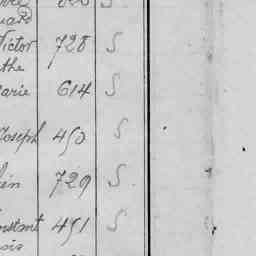 uard
Victor 728 S
the
arie 614 S
Joseph 450 S
729 S
nstant 451 S
ois